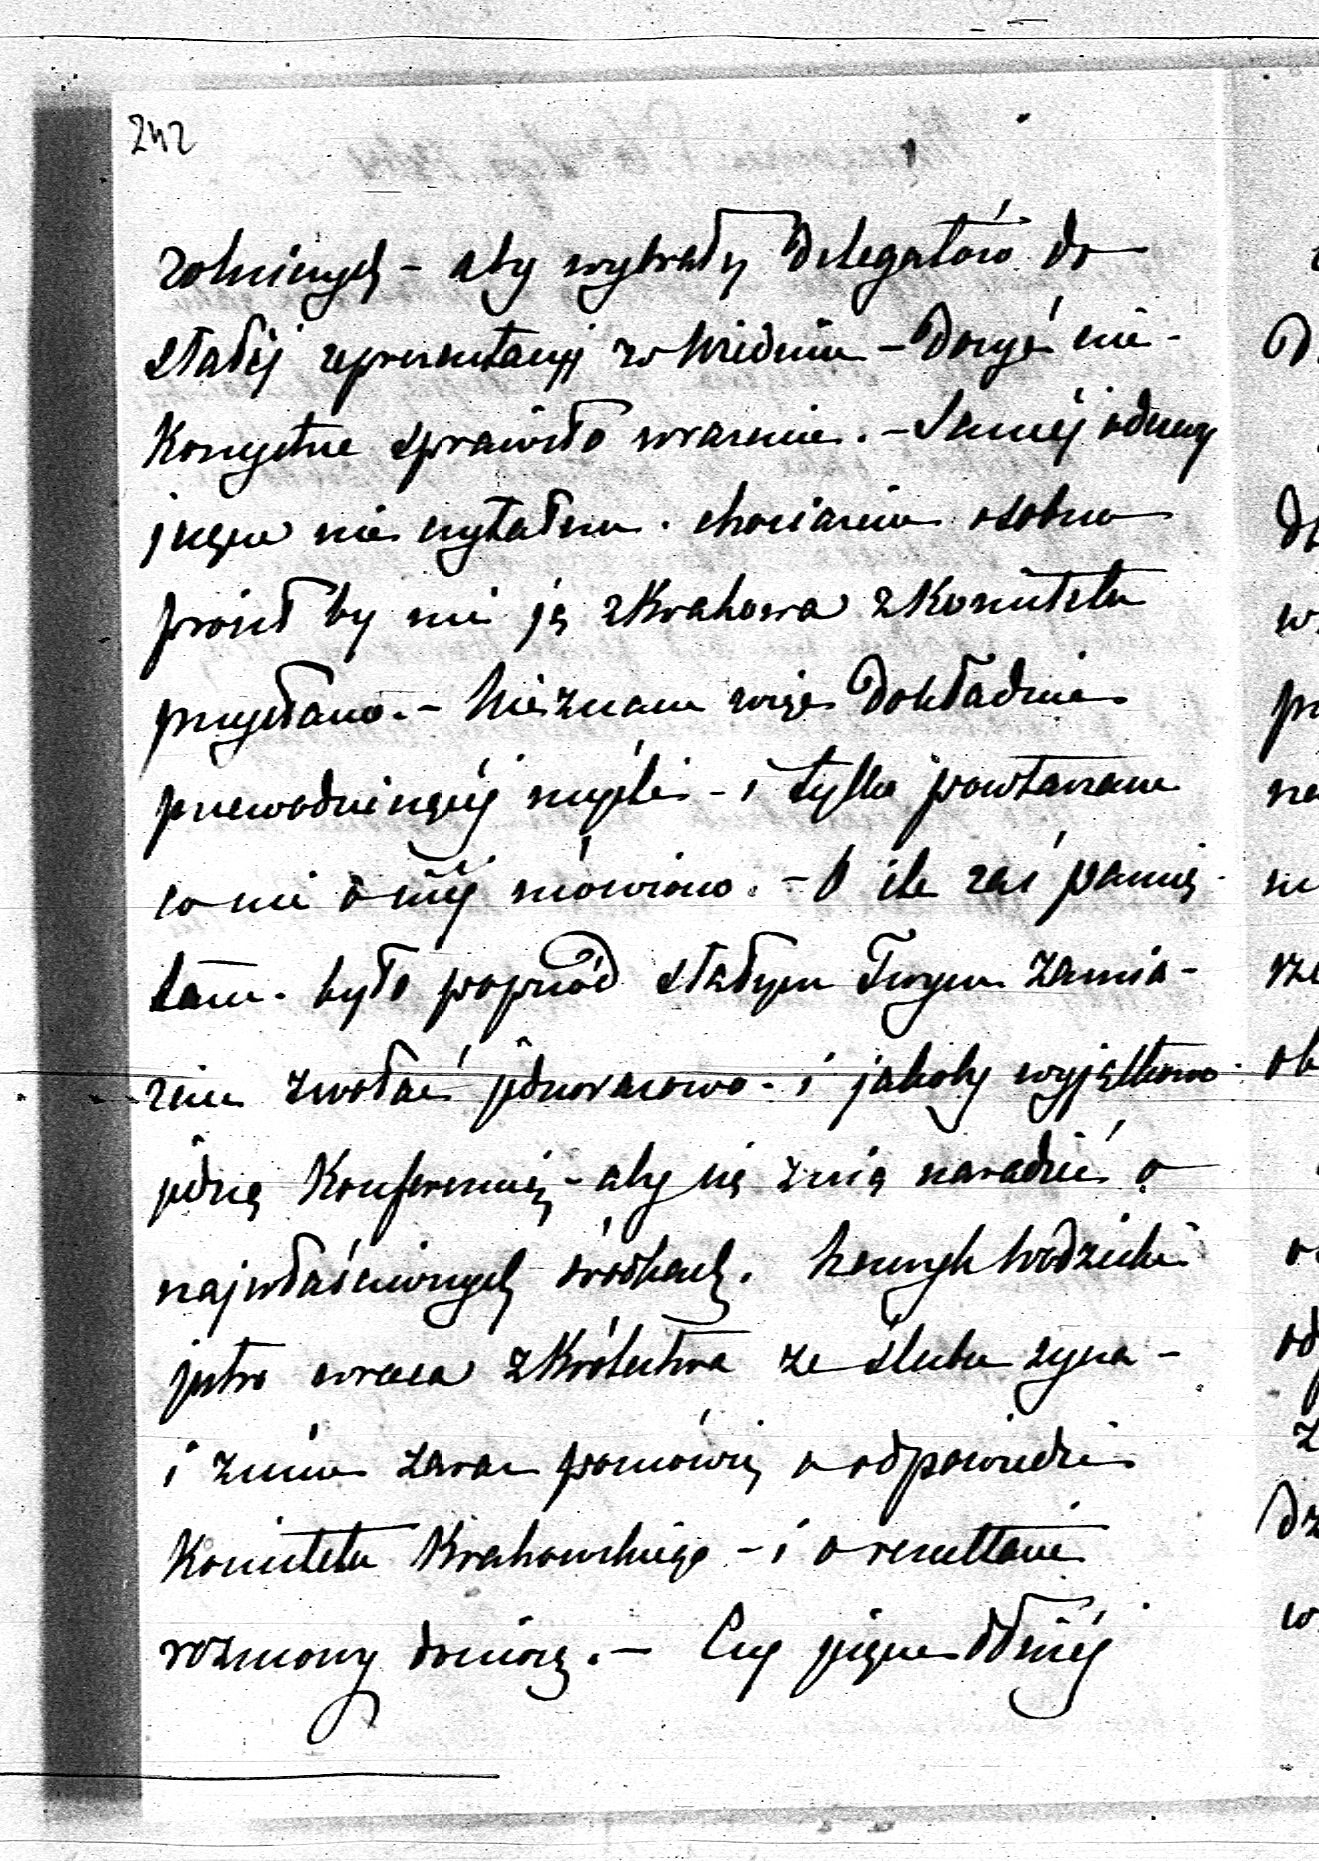 242
rolniczych – aby wybrały Delegatów do
stałej reprezentacyj w Wiedniu – Dosyć nie-
Korzystne sprawiło wrażenie. – Samej odezwy
jeszcze nie czytałem. chociażem osobno
prosił by mi ją z Krakowa z Komitetu
przysłano. – Nieznam więc Dokładnie
przewodniczej myśli – i tylko powtarzam
co mi o niej mówiono. – O ile zaś pamię-
tam. było poprzód stałym Twym zamia-
rem zwołać jednorazowo – i jakoby wyjątkowo
jedną Konferencię – aby się z nią naradzić o
najwłaściwszych środkach. Henryk Wodzicki
jutro wraca z Królestwa ze ślubu syna –
i z nim zaraz pomówię o odpowiedzi
Komitetu Krakowskiego – i o rezultacie
rozmowy doniosę. – Czy